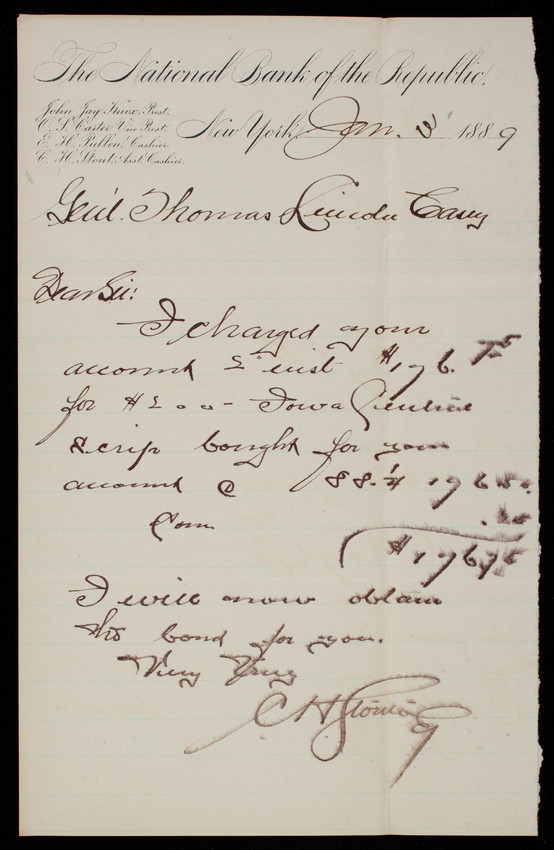 The National Bank of the Republic.
John Jay Knox, Prest.
O. S. Carter Vice Prest.
E. H. Pullen, Cashier.
C. H. Stout, Asst Cashier.
New York, Jan. 1889
Genl. Thomas Lincoln Casey
Dear Sir:
I charged your
account 2" inst $176.75
for $200 - Iowa Central
Scrip bought for your
account @ 88.1/4 176.50
Com .25
$176.75
I will now obtain
the bond for you.
Very Truly
C H